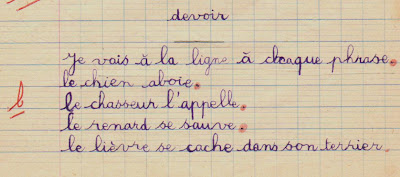 devoir
Je vais à la ligne à chaque phrase.
le chien aboie.
b le chasseur l'appelle.
le renard se sauve.
le lièvre se cache dans son terrier.